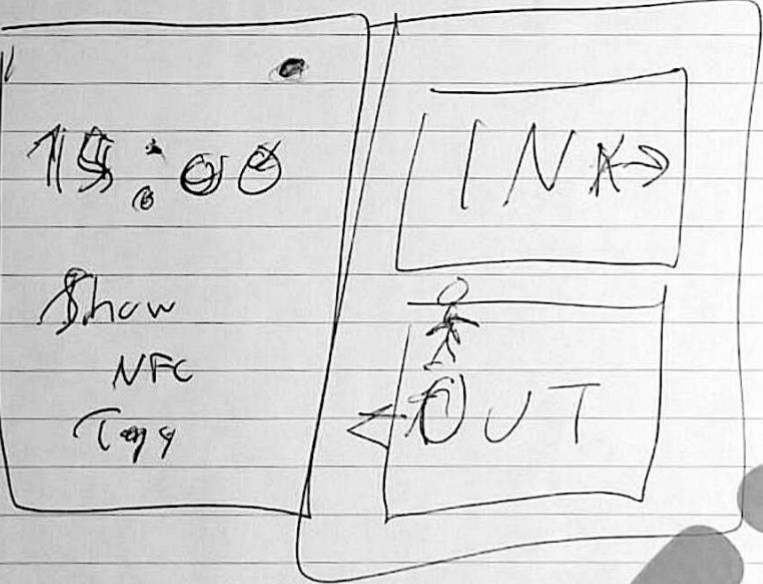 15:00
Show
NFC
Tag
IN
OUT